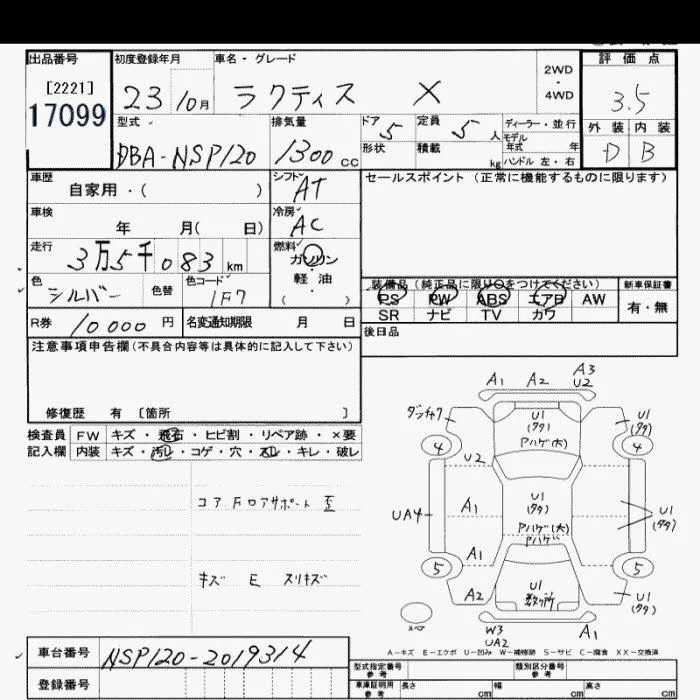 出品番号 初度登録年月 車名・グレード 2WD ・ 4WD 評価点
[2221] 17099 23 10月 ラクティス X 3.5
型式 排気量 ドア 5 定員 5人 ディーラー・並行 外装 内装
DBA-NSP120 1300 cc 形状 積載 kg モデル年式 年 ハンドル 左・右 D B
車歴 自家用・( ) シフト AT セールスポイント(正常に機能するものに限ります)
車検 年 月( 日) 冷房 AC
走行 3万5千083 km 燃料 ガソリン
軽油
( )
色 シルバー 色替 色コード 1F7
装備品(純正品に限り○をつけてください) 新車保証書
PS PW ABS エアB AW 有・無
SR ナビ TV カワ
R券 10000円 名変通知期限 月 日 後日品
注意事項申告欄(不具合内容等は具体的に記入して下さい)
修復歴 有 〔箇所 〕
検査員 FW キズ・飛石・ヒビ割・リペア跡・×要
記入欄 内装 キズ・汚レ・コゲ・穴・スレ・キレ・破レ
コアFロアサポート 歪
キズ E スリキズ
A1 A2 A3
U2
U1
(タタ)
Pハゲ(大)
U1
(タタ)
4
4
U2
UA4
A1
U1
(タタ)
Pハゲ(大)
Pハゲ
U1
(タタ)
A1
5
5
A2
U1
数ヶ所
U1
(タタ)
スペア
W3
UA2
A1
A-キズ E-エクボ U-凹み W-補修跡 S-サビ C-腐食 XX-交換済
車台番号 NSP120-2019314
登録番号
型式指定番号 参考 類別区分番号 参考
車庫証明用 参考 長さ cm 幅 cm 高さ cm